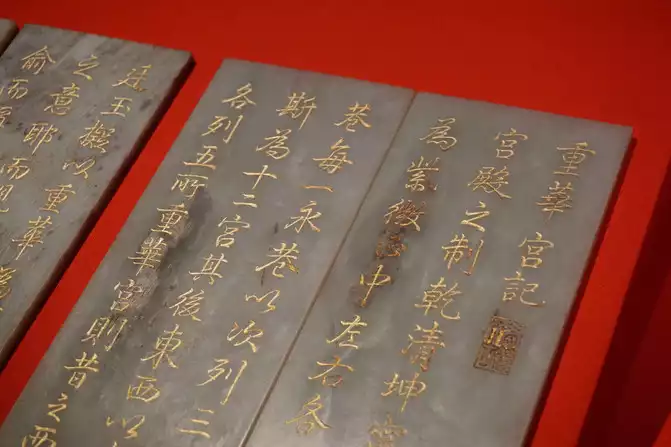 重華宮記
宮殿之制乾清坤
為中左右各
巷每一永巷以次列二
斯為十二宮其後東西以
各列五所重華宮則昔之西
廷王以重華
之意耶
俞而